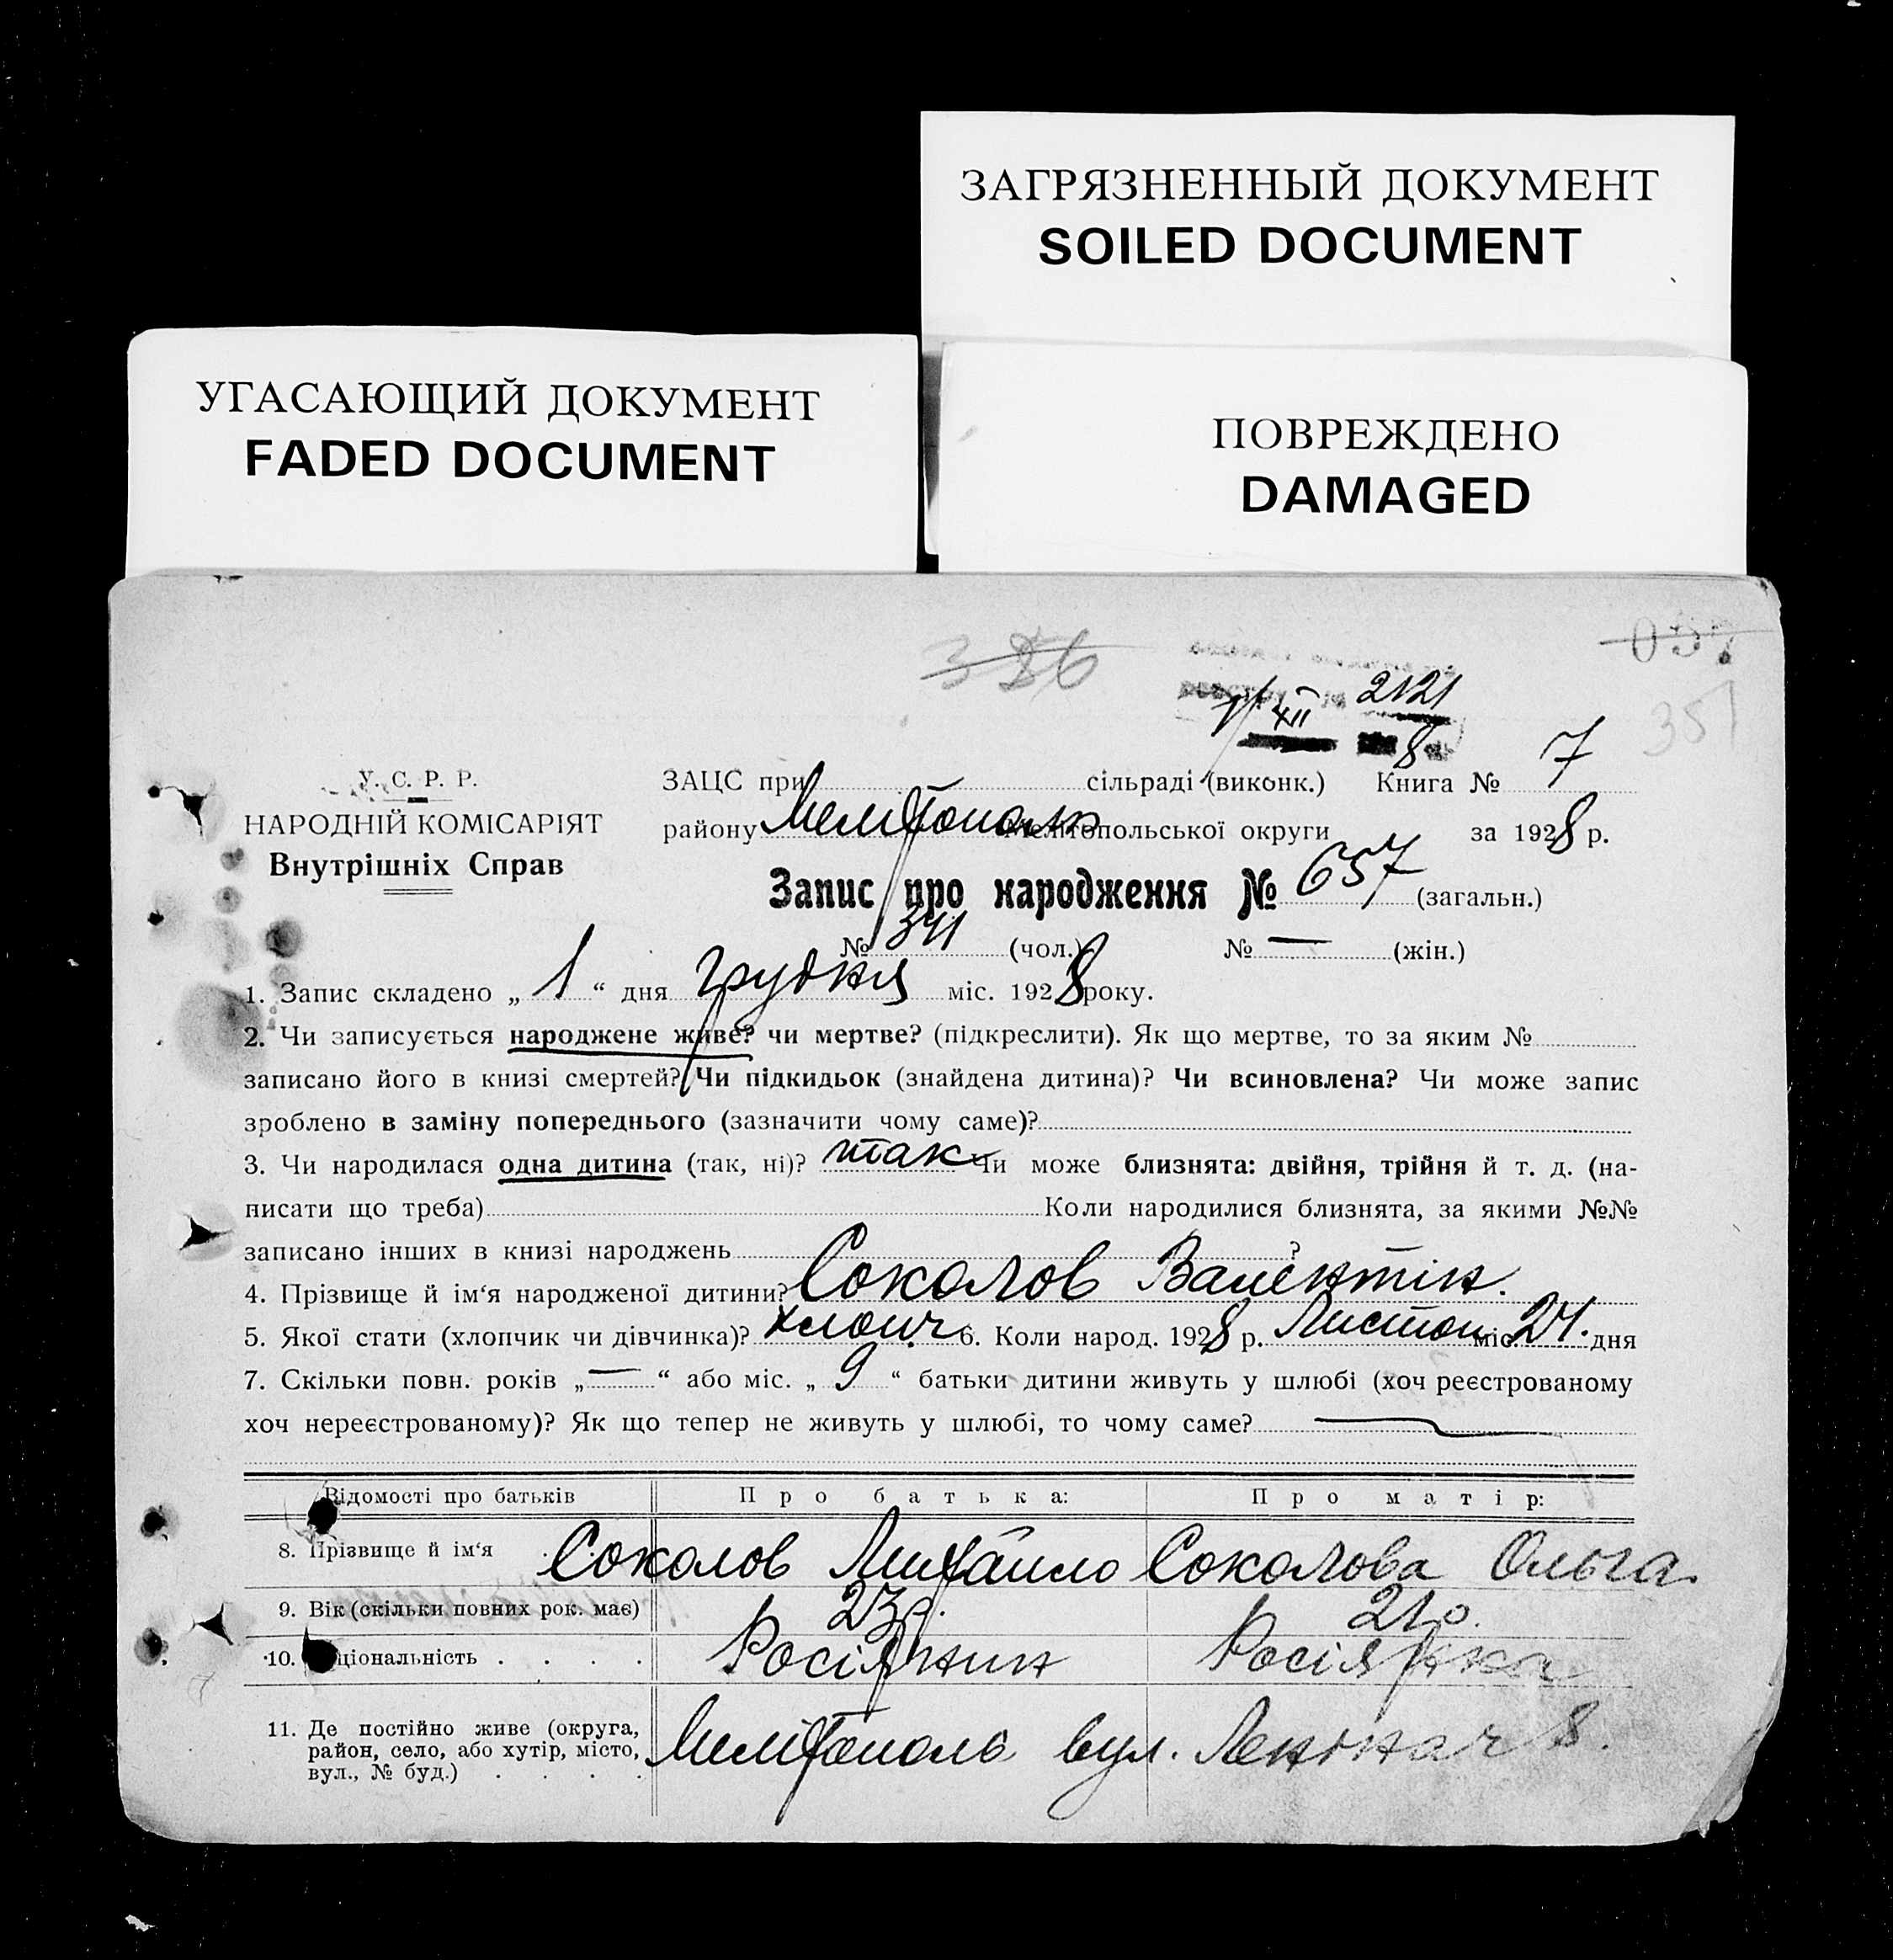 ЗАГРЯЗНЕННЫЙ ДОКУМЕНТ
SOILED DOCUMENT
УГАСАЮЩИЙ ДОКУМЕНТ
FADED DOCUMENT
ПОВРЕЖДЕНО
DAMAGED
386
2121
XII
8
351
У. С. Р. Р.
НАРОДНІЙ КОМІСАРІЯТ
Внутрішніх Справ
ЗАЦС при сільраді (виконк.) Книга № 7
району Мелітополь Мелітопольської округи за 1928 р.
Запис про народження № 657 (загальн.)
№ 341 (чол.) № — (жін.)
1. Запис складено „ 1 “ дня грудня міс. 1928 року.
2. Чи записується народжене живе? чи мертве? (підкреслити). Як що мертве, то за яким №
записано його в книзі смертей? Чи підкидьок (знайдена дитина)? Чи всиновлена? Чи може запис
зроблено в заміну попереднього (зазначити чому саме)?
3. Чи народилася одна дитина (так, ні)? так Чи може близнята: двійня, трійня й т. д. (на-
писати що треба) Коли народилися близнята, за якими №№
записано інших в книзі народжень ?
4. Прізвище й ім‘я народженої дитини? Соколов Валентін.
5. Якої стати (хлопчик чи дівчинка)? хлопч. 6. Коли народ. 1928 р. Листоп міс. 24. дня
7. Скільки повн. років „ — “ або міс. „ 9 “ батьки дитини живуть у шлюбі (хоч реєстрованому
хоч нереєстрованому)? Як що тепер не живуть у шлюбі, то чому саме? —
Відомості про батьків Про батька: Про матір:
8. Прізвище й ім‘я Соколов Михайло Соколова Ольга.
9. Вік (скільки повних рок. має) 23 р. 21 р.
10. ціональність . . . . Росіянин Росіянка
11. Де постійно живе (округа,
район, село, або хутір, місто, Мелітополь вул. 8.
вул., № буд.) . . . .